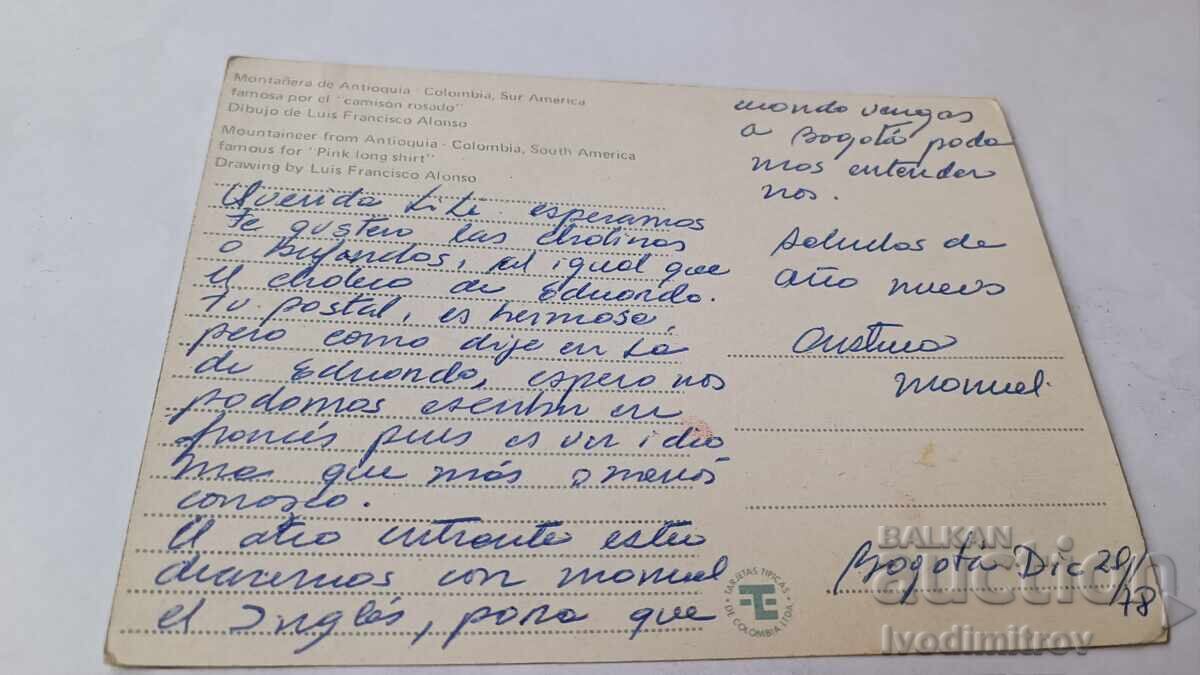 Montañera de Antioquia - Colombia, Sur America
famosa por el "camison rosado"
Dibujo de Luis Francisco Alonso
Mountaineer from Antioquia - Colombia, South America
famous for "Pink long shirt"
Drawing by Luis Francisco Alonso
Querida Lili esperamos
te gustero las
o bufandas, al igual que
el de Eduardo.
Tu postal, es hermosa,
pero como dije en la
de Eduardo, espero nos
podamos escribir en
francés pues es un idio
ma que más o menos
conosco.
El año entrante estu
diaremos con Manuel
el Inglés, para que
cuando vengas
a Bogotá poda
mos entender
nos.
Saludos de
año nuevo
Manuel.
Bogotá Dic 28/78
TARJETAS TIPICAS DE COLOMBIA LTDA.
BALKAN
auction
Ivodimitrov